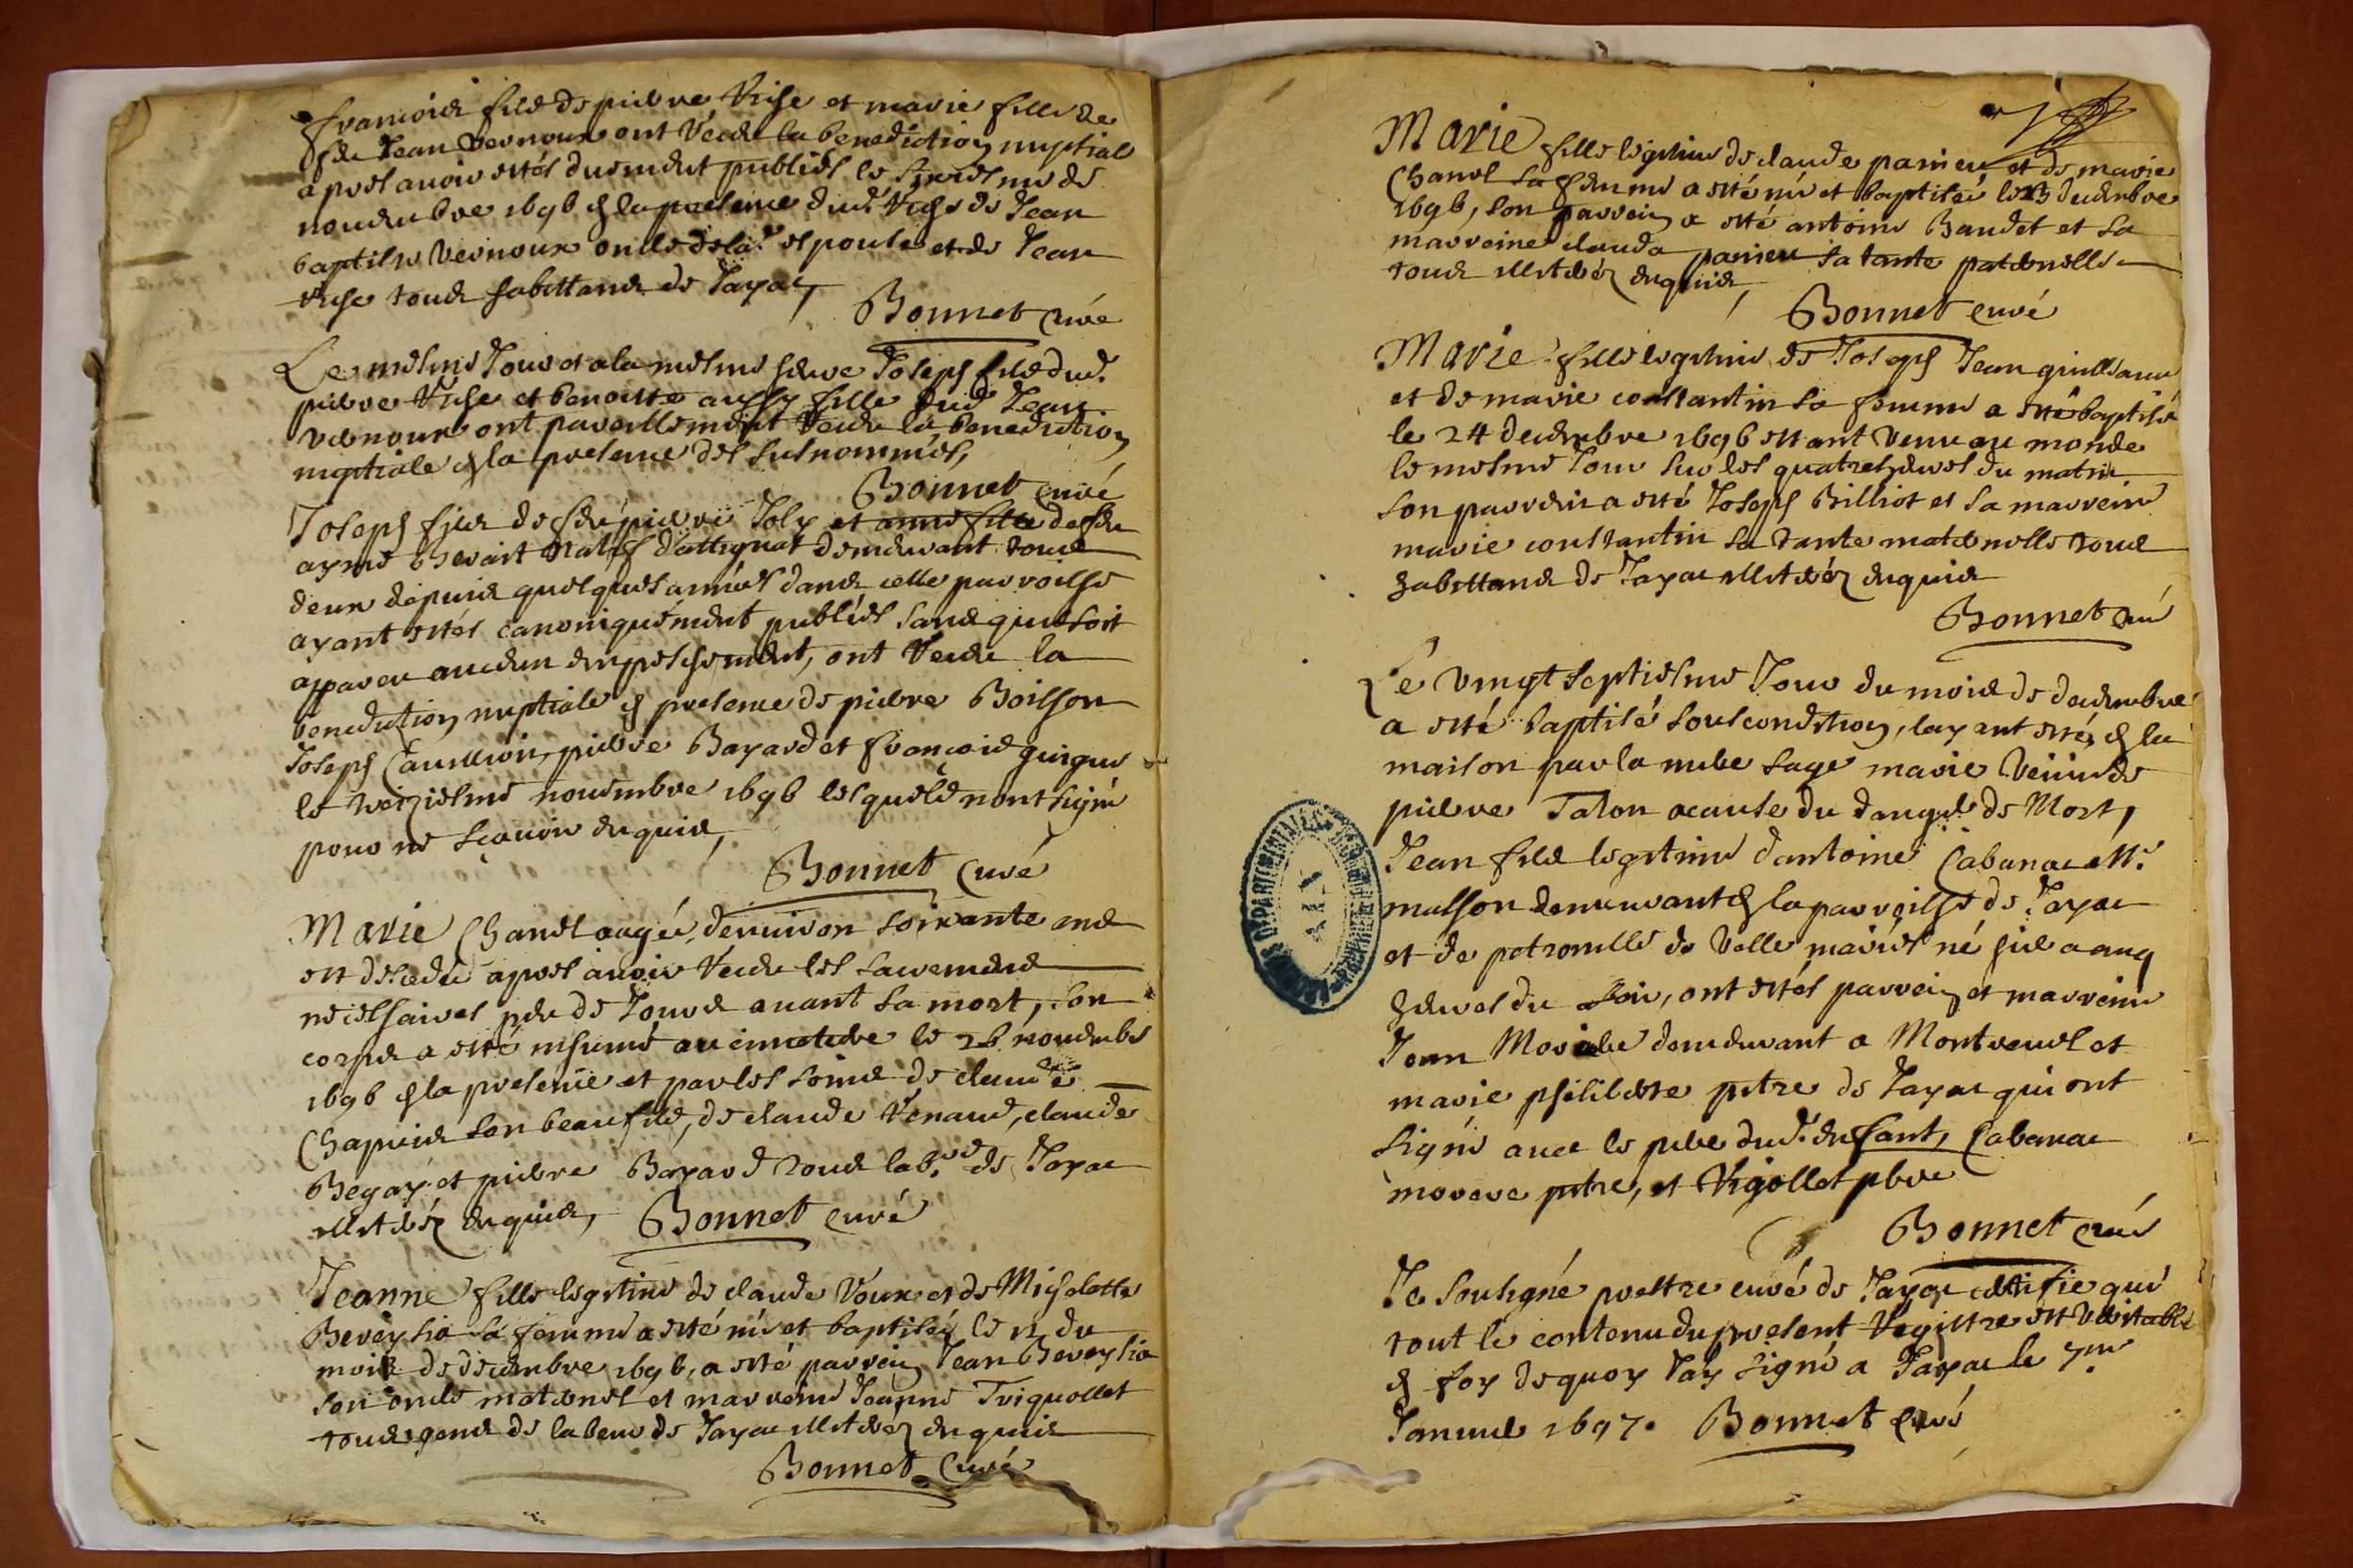 françois fils de pierre Vuhe et marie fille de
feu Jean Vernoux ont receu la benediction nuptiale
apres avoir estés duement publiés le
novembre 1696 en la presence dud. de Jean
baptiste Vernoux oncle de lad. espouse et de Jean
tous habittans de Jayac,
Bonnet curé
Le mesme Jour et a la mesme heure Joseph fils dud.
pierre et benoitte aussy fille dud. Jean
vernoux ont pareillement receu la benediction
nuptiale en la presence des susnommés,
Bonnet curé
Joseph fils de feu pierre Joly et anne fille de feu
aymé natif d'attignat demeurant tous
deux depuis quelques années dans cette parroisse
ayant estés canoniquement publiés sans qu'il soit
appareu aucun empeschement, ont receu la
benediction nuptiale en presence de pierre Boisson
Joseph pierre Bayard et françois guigue
le treiziesme novembre 1696 lesquels n'ont signé
pour ne sçavoir enquis,
Bonnet curé
Marie Chanel aagée d'environ soixante ans
est decedée apres avoir receu les sacremens
necessaires peu de Jours avant sa mort, son
corps a esté inhumé au cimetiere le 26 novembre
1696 en la presence et par les soins de claude
Chapuis son beaufils, de claude Renaud, claude
Begay et pierre Bayard tous lab.rs de Jayac
illiterés enquis, Bonnet curé
Jeanne fille legitime de claude Roux et de Michelette
Bereysia sa femme a esté née et baptisée le 12 du
mois de decembre 1696, a esté parrein Jean Bereysia
son oncle maternel et marreine Jeanne Triquollet
tous gens de labeur de Jayac illiterés enquis
Bonnet curé
Marie fille legitime de claude panier et de marie
Chanel sa femme a esté née et baptisée le decembre
1696, son parrein a esté antoine Baudet et sa
marreine clauda panier sa tante paternelle
tous illiterés enquis,
Bonnet curé
Marie fille legitime de Joseph Jeanguilleaume
et de marie constantin sa femme a esté baptisée
le 24 decembre 1696 estant venu au monde
le mesme Jour sur les quatre heures du matin
son parrein a esté Joseph Billiot et sa marreine
marie constantin sa tante maternelle tous
habittans de Jayac illiterés enquis
Bonnet curé
Le vingt septiesme Jour du mois de decembre
a esté baptisé sous condition, layant esté en la
maison par la mere sage marie veuve de
pierre Talon a cause du danger de Mort,
Jean fils legitime d'antoine Cabanac M.e
masson demeurant en la parroisse de Jayac
et de petronille de Valle mariés né hier a cinq
heures du soir, ont estés parrein et marreine
Jean demeurant a Montrevel et
marie philiberte pitre de Jayac qui ont
signé avec le pere dud. enfant, Cabanac
pitre, et Rigollet pbre
Bonnet curé
Je soussigné prestre curé de Jayac certifie que
tout le contenu du present Registre est veritable
en foy de quoy Jay signé a Jayac le 7me
Janvier 1697. Bonnet curé